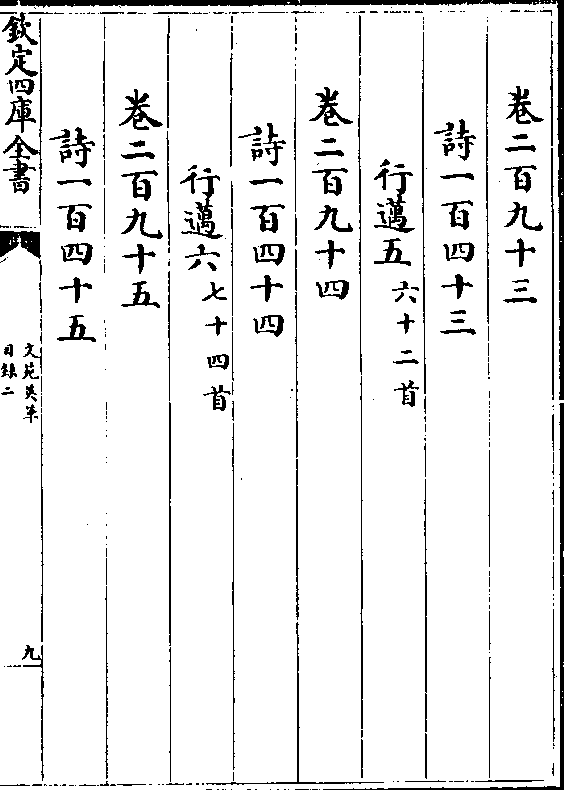 卷二百九十三
詩一百四十三
行邁五六十二首
卷二百九十四
詩一百四十四
行邁六七十四首
卷二百九十五
詩一百四十五
欽定四庫全書
文苑英華
目錄二
九